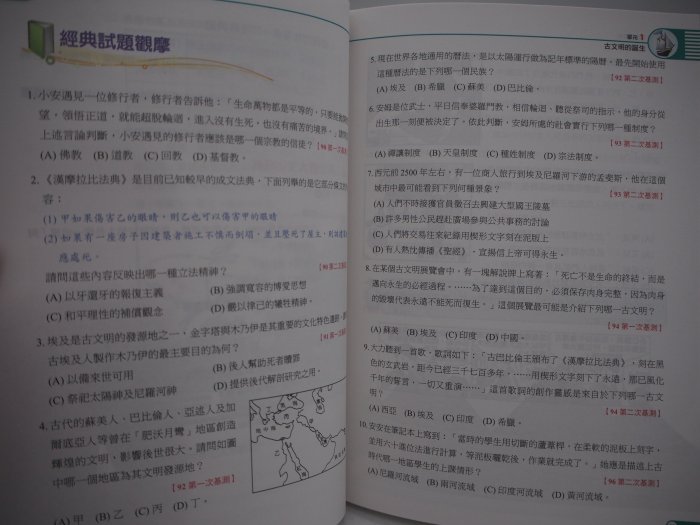 經典試題觀摩
1. 小安遇見一位修行者，修行者告訴他：「生命萬物都是平等的，只要能
望，領悟正道，就能超脫輪迴，進入沒有生死，也沒有痛苦的境界。」請問
上述言論判斷，小安遇見的修行者應該是哪一個宗教的信徒？
(A) 佛教 (B) 道教 (C) 回教 (D) 基督教。
2. 《漢摩拉比法典》是目前已知較早的成文法典，下面列舉的是它部分條文
容：
(1) 甲如果傷害乙的眼睛，則乙也可以傷害甲的眼睛
(2) 如果有一座房子因建築者施工不慎而倒塌，並且壓死了屋主，則
應處死。
請問這些內容反映出哪一種立法精神？
(A) 以牙還牙的報復主義 (B) 強調寬容的博愛思想
(C) 和平理性的補償觀念 (D) 嚴以律己的犧牲精神。
3. 埃及是古文明的發源地之一，金字塔與木乃伊是其重要的文化特色
古埃及人製作木乃伊的最主要目的為何？
(A) 以備來世可用 (B) 後人幫助死者贖罪
(C) 祭祀太陽神及尼羅河神 (D) 提供後代解剖研究之用。
4. 古代的蘇美人、巴比倫人、亞述人及加
爾底亞人等曾在「肥沃月彎」地區創造
輝煌的文明，影響後世很大。請問如圖
中哪一個地區為其文明發源地？
【92 第一次基測】
(A) 甲 (B) 乙 (C) 丙 (D) 丁。
單元 1
古文明的誕生
5. 現在世界各地通用的曆法，是以太陽運行做為記年標準的陽曆，最先開始使用
這種曆法的是下列哪一個民族？ 【92 第二次基測】
(A) 埃及 (B) 希臘 (C) 蘇美 (D) 巴比倫。
6. 安姆是位武士，平日信奉婆羅門教，相信輪迴，聽從祭司的指示，他的身分從
出生那一刻便被決定了。依此判斷，安姆所處的社會實行下列哪一種制度？
【93 第二次基測】
(A) 禪讓制度 (B) 天皇制度 (C) 種姓制度 (D) 宗法制度。
7. 西元前 2500 年左右，有一位商人旅行到埃及尼羅河下游的孟斐斯，他在這個
城市中最可能看到下列何種景象？ 【93 第二次基測】
(A) 人們不時接獲官員徵召去興建大型國王陵墓
(B) 許多男性公民趕赴廣場參與公共事務的討論
(C) 人們將交易往來紀錄用楔形文字刻在泥版上
(D) 有人熱忱傳播《聖經》，宣揚信上帝可得永生。
8. 在某個古文明展覽會中，有一塊解說牌上寫著：「死亡不是生命的終結，而是
邁向永生的必經過程，……為了達到這個目的，必須保存肉身完整，因為肉身
的毀壞代表永遠不能死而復生。」這個展覽最可能是介紹下列哪一古文明？
【94 第一次基測】
(A) 蘇美 (B) 埃及 (C) 印度 (D) 中國。
9. 大力聽到一首歌，歌詞如下：「古巴比倫王頒布了《漢摩拉比法典》，刻在黑
色的玄武岩，距今已經三千七百多年，……用楔形文字刻下了永遠，那已風化
千年的誓言，一切又重演……」這首歌詞的創作靈感是來自於下列哪一古文
明？ 【94 第二次基測】
(A) 西亞 (B) 埃及 (C) 印度 (D) 希臘。
10. 安安在筆記本上寫到：「當時的學生用切斷的蘆葦桿，在柔軟的泥板上刻字，
並用六十進位法進行計算，等泥板曬乾後，作業就完成了。」她應是描述上古
時代哪一地區學生的上課情形？ 【96 第二次基測】
(A) 尼羅河流域 (B) 兩河流域 (C) 印度河流域 (D) 黃河流域。